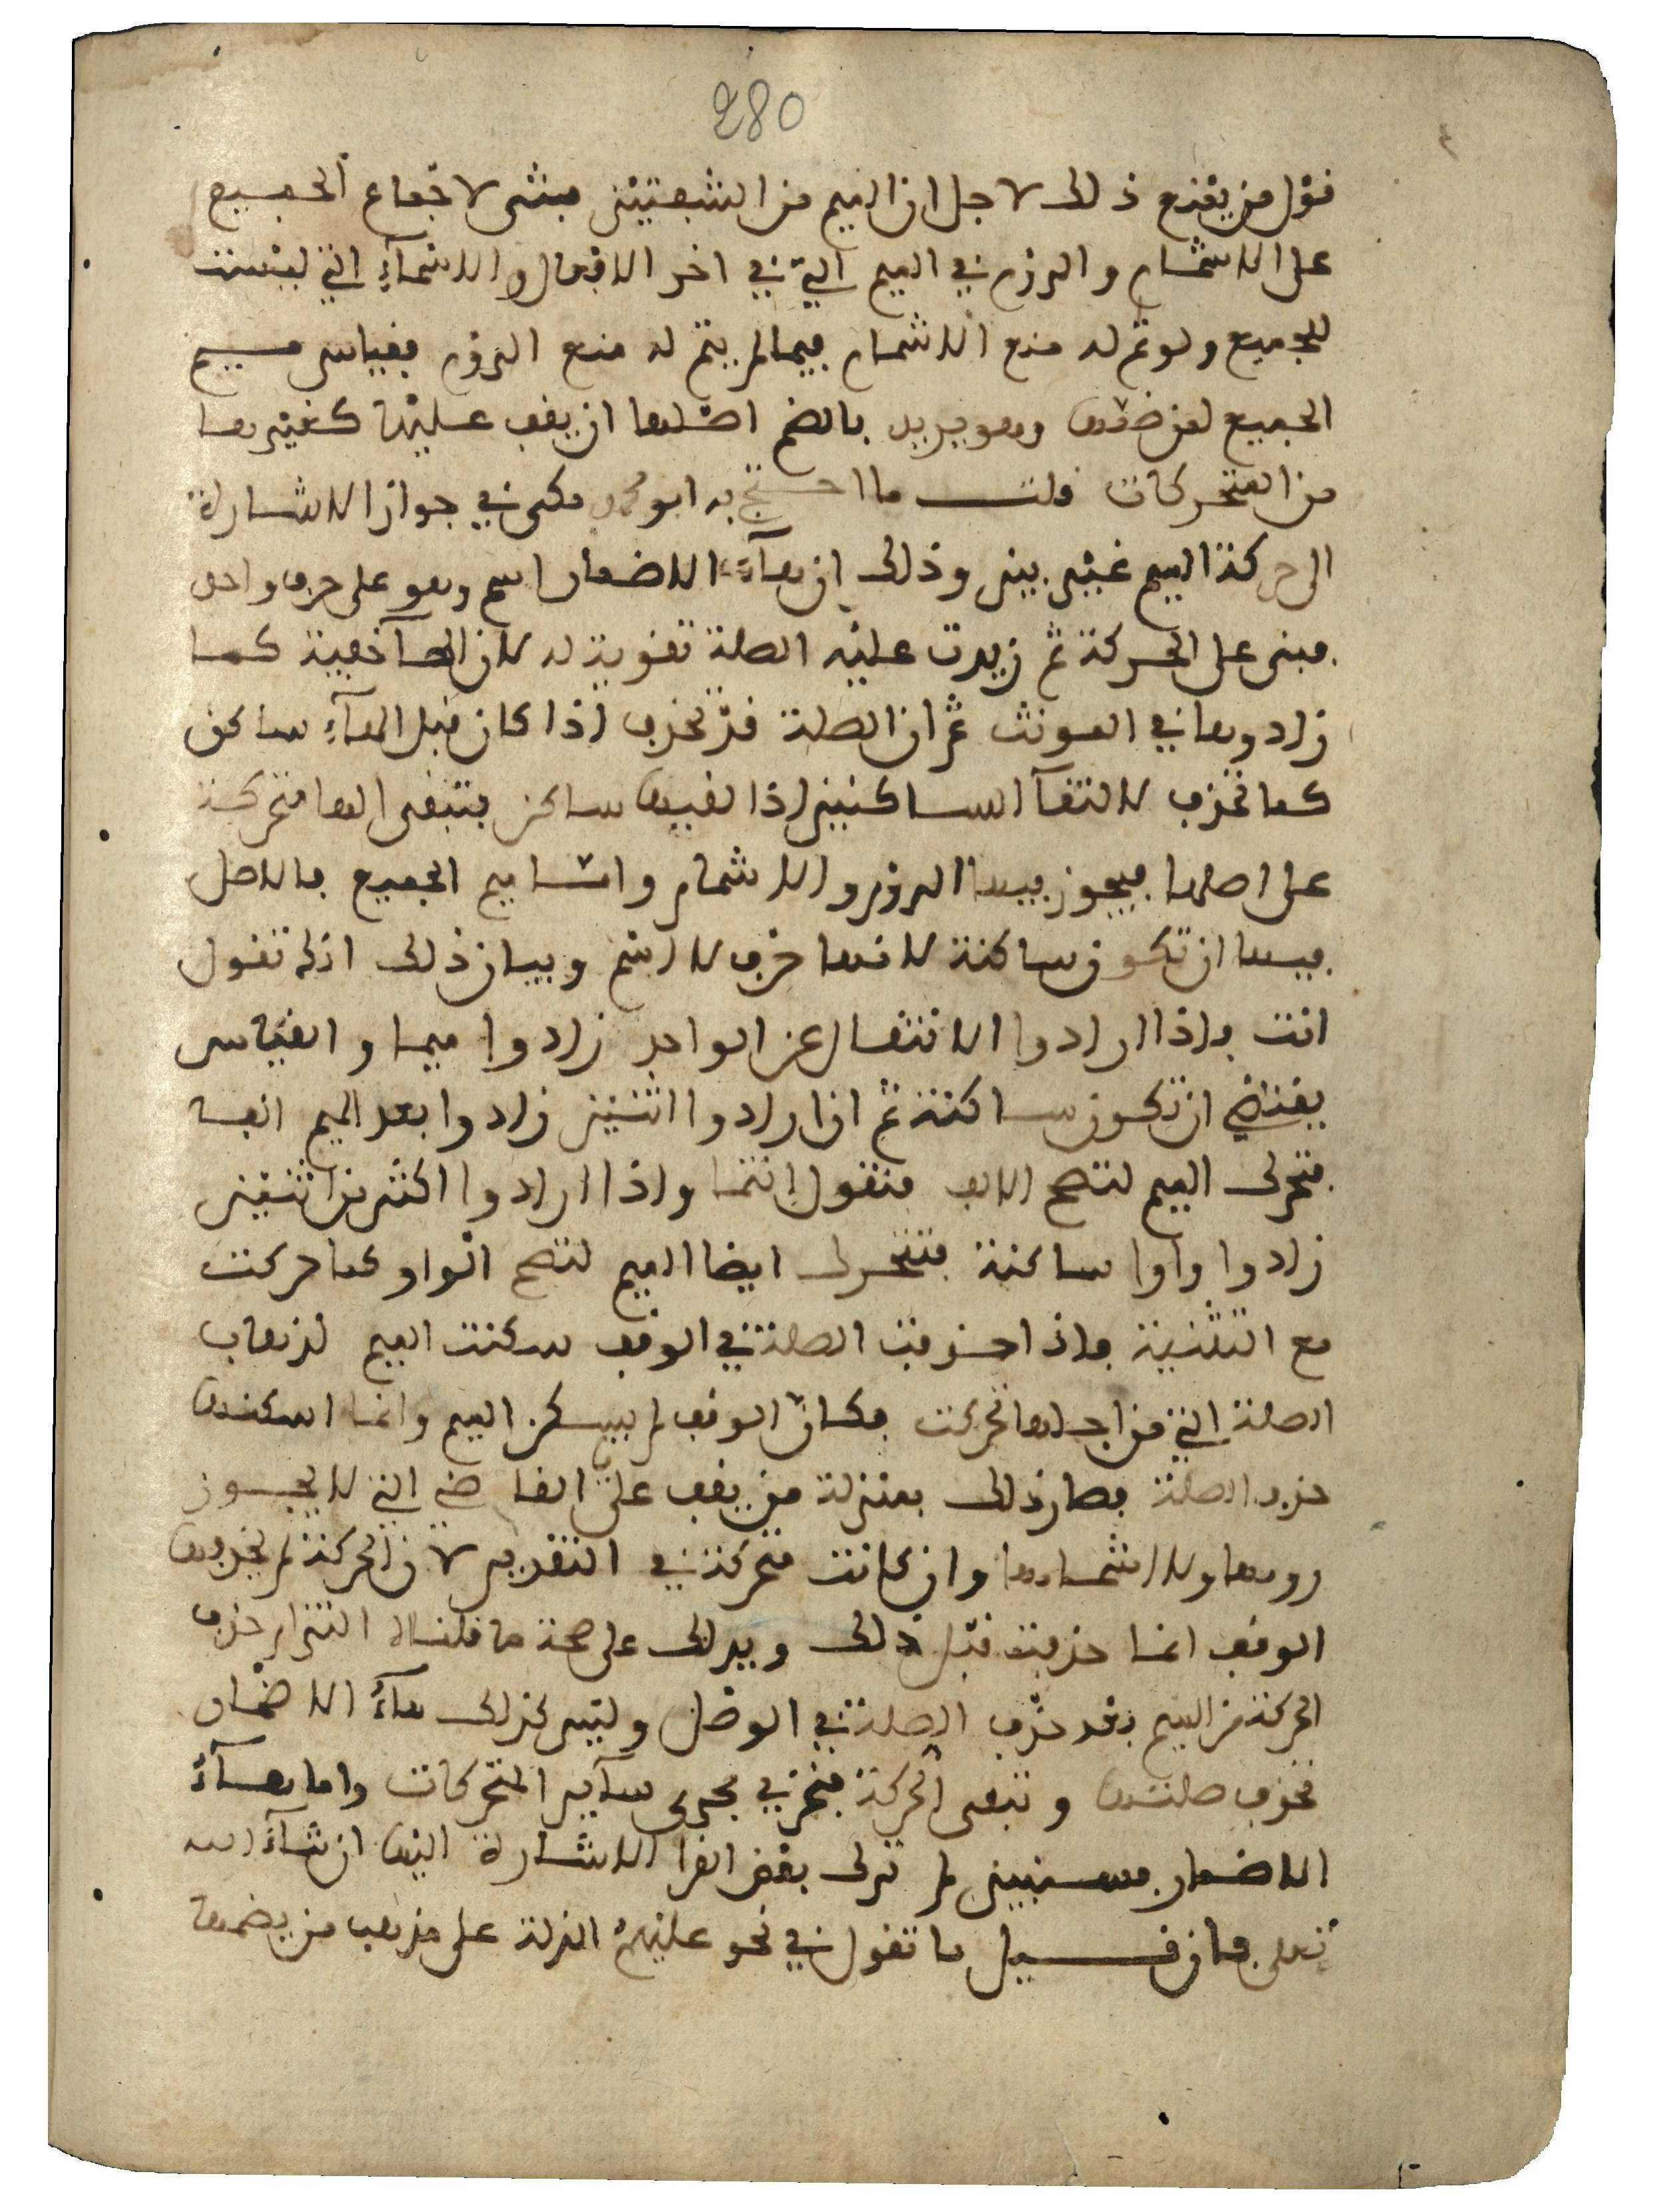 280
قول من يمنع ذلك لاجل ان الميم من الشفتين فبشى لاجماع الجميع
على الاشمام والروم في الميم التي في اخر الافعال والاسماء التي ليست
للجميع ولو تم له منع الاشمام فيها لم يتم له منع الروم فقياس ميم
الجميع لمن ضمها وهو يريد بالضم اصلها ان يقف عليها كغيرها
من المتحركات قلت ما احتج به ابو محمد مكي في جواز الاشارة
الى حركة الميم غير بين وذلك ان هآء الاضمار اسم وهو على حرف واحد
مبنى على الحركة ثم زيدت عليه الصلة تقوية له لان الهآ خفية كما
زادوها في المونث ثم ان الصلة قد تحذف اذا كان قبل الهآء ساكن
كما تحذف لالتقآ الساكنين اذا لقيها ساكن فتبقى الها متحركة
على اصلها فيجوز فيها الروم والاشمام واما ميم الجميع فالاصل
فيها ان تكون ساكنة لانها حرف لا اسم وبيان ذلك انك تقول
انت فاذا ارادوا الانتقال عن الواحد زادوا ميما والقياس
يقتضي ان تكون ساكنة ثم ان ارادوا اثنين زادوا بعد الميم الفا
فتحرك الميم لتصح الالف فتقول انتما واذا ارادوا اكثر من اثنين
زادوا واوا ساكنة فتتحرك ايضا الميم لتصح الواو كما حركت
مع التثنية فاذا حذفت الصلة في الوقف سكنت الميم لذهاب
الصلة التي من اجلها تحركت فكان الوقف لم يسكن الميم وانما اسكنها
حذف الصلة فصار ذلك بمنزلة من يقف على الفا ضى التي لا يجوز
رومها ولا اشمامها وان كانت متحركة في التقدير لان الحركة لم يحذفها
الوقف انما حذفت قبل ذلك ويدلك على صحة ما قلناه التزام حذف
الحركة من الميم بعد حذف الصلة في الوصل وليس كذلك هآء الاضمار
تحذف صلتها وتبقى الحركة فتجري مجرى سآير المتحركات واما هآء
الاضمار فسنبين لم ترك بعض القرا الاشارة اليها ان شآء الله
تعلى فان قيل ما تقول في نحو عليهم الذلة على مذهب من يضمها